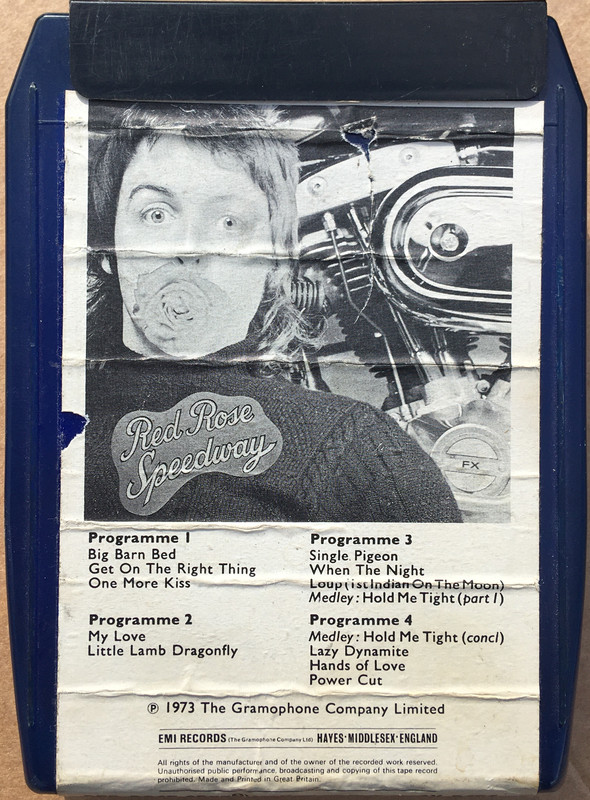 Red Rose
Speedway
FX
Programme 1
Big Barn Bed
Get On The Right Thing
One More Kiss
Programme 2
My Love
Little Lamb Dragonfly
Programme 3
Single Pigeon
When The Night
Loup (1st Indian On The Moon)
Medley: Hold Me Tight (part 1)
Programme 4
Medley: Hold Me Tight (concl)
Lazy Dynamite
Hands of Love
Power Cut
℗ 1973 The Gramophone Company Limited
EMI RECORDS (The Gramophone Company Ltd) HAYES·MIDDLESEX·ENGLAND
All rights of the manufacturer and of the owner of the recorded work reserved.
Unauthorised public performance, broadcasting and copying of this tape record
prohibited. Made and Printed in Great Britain.